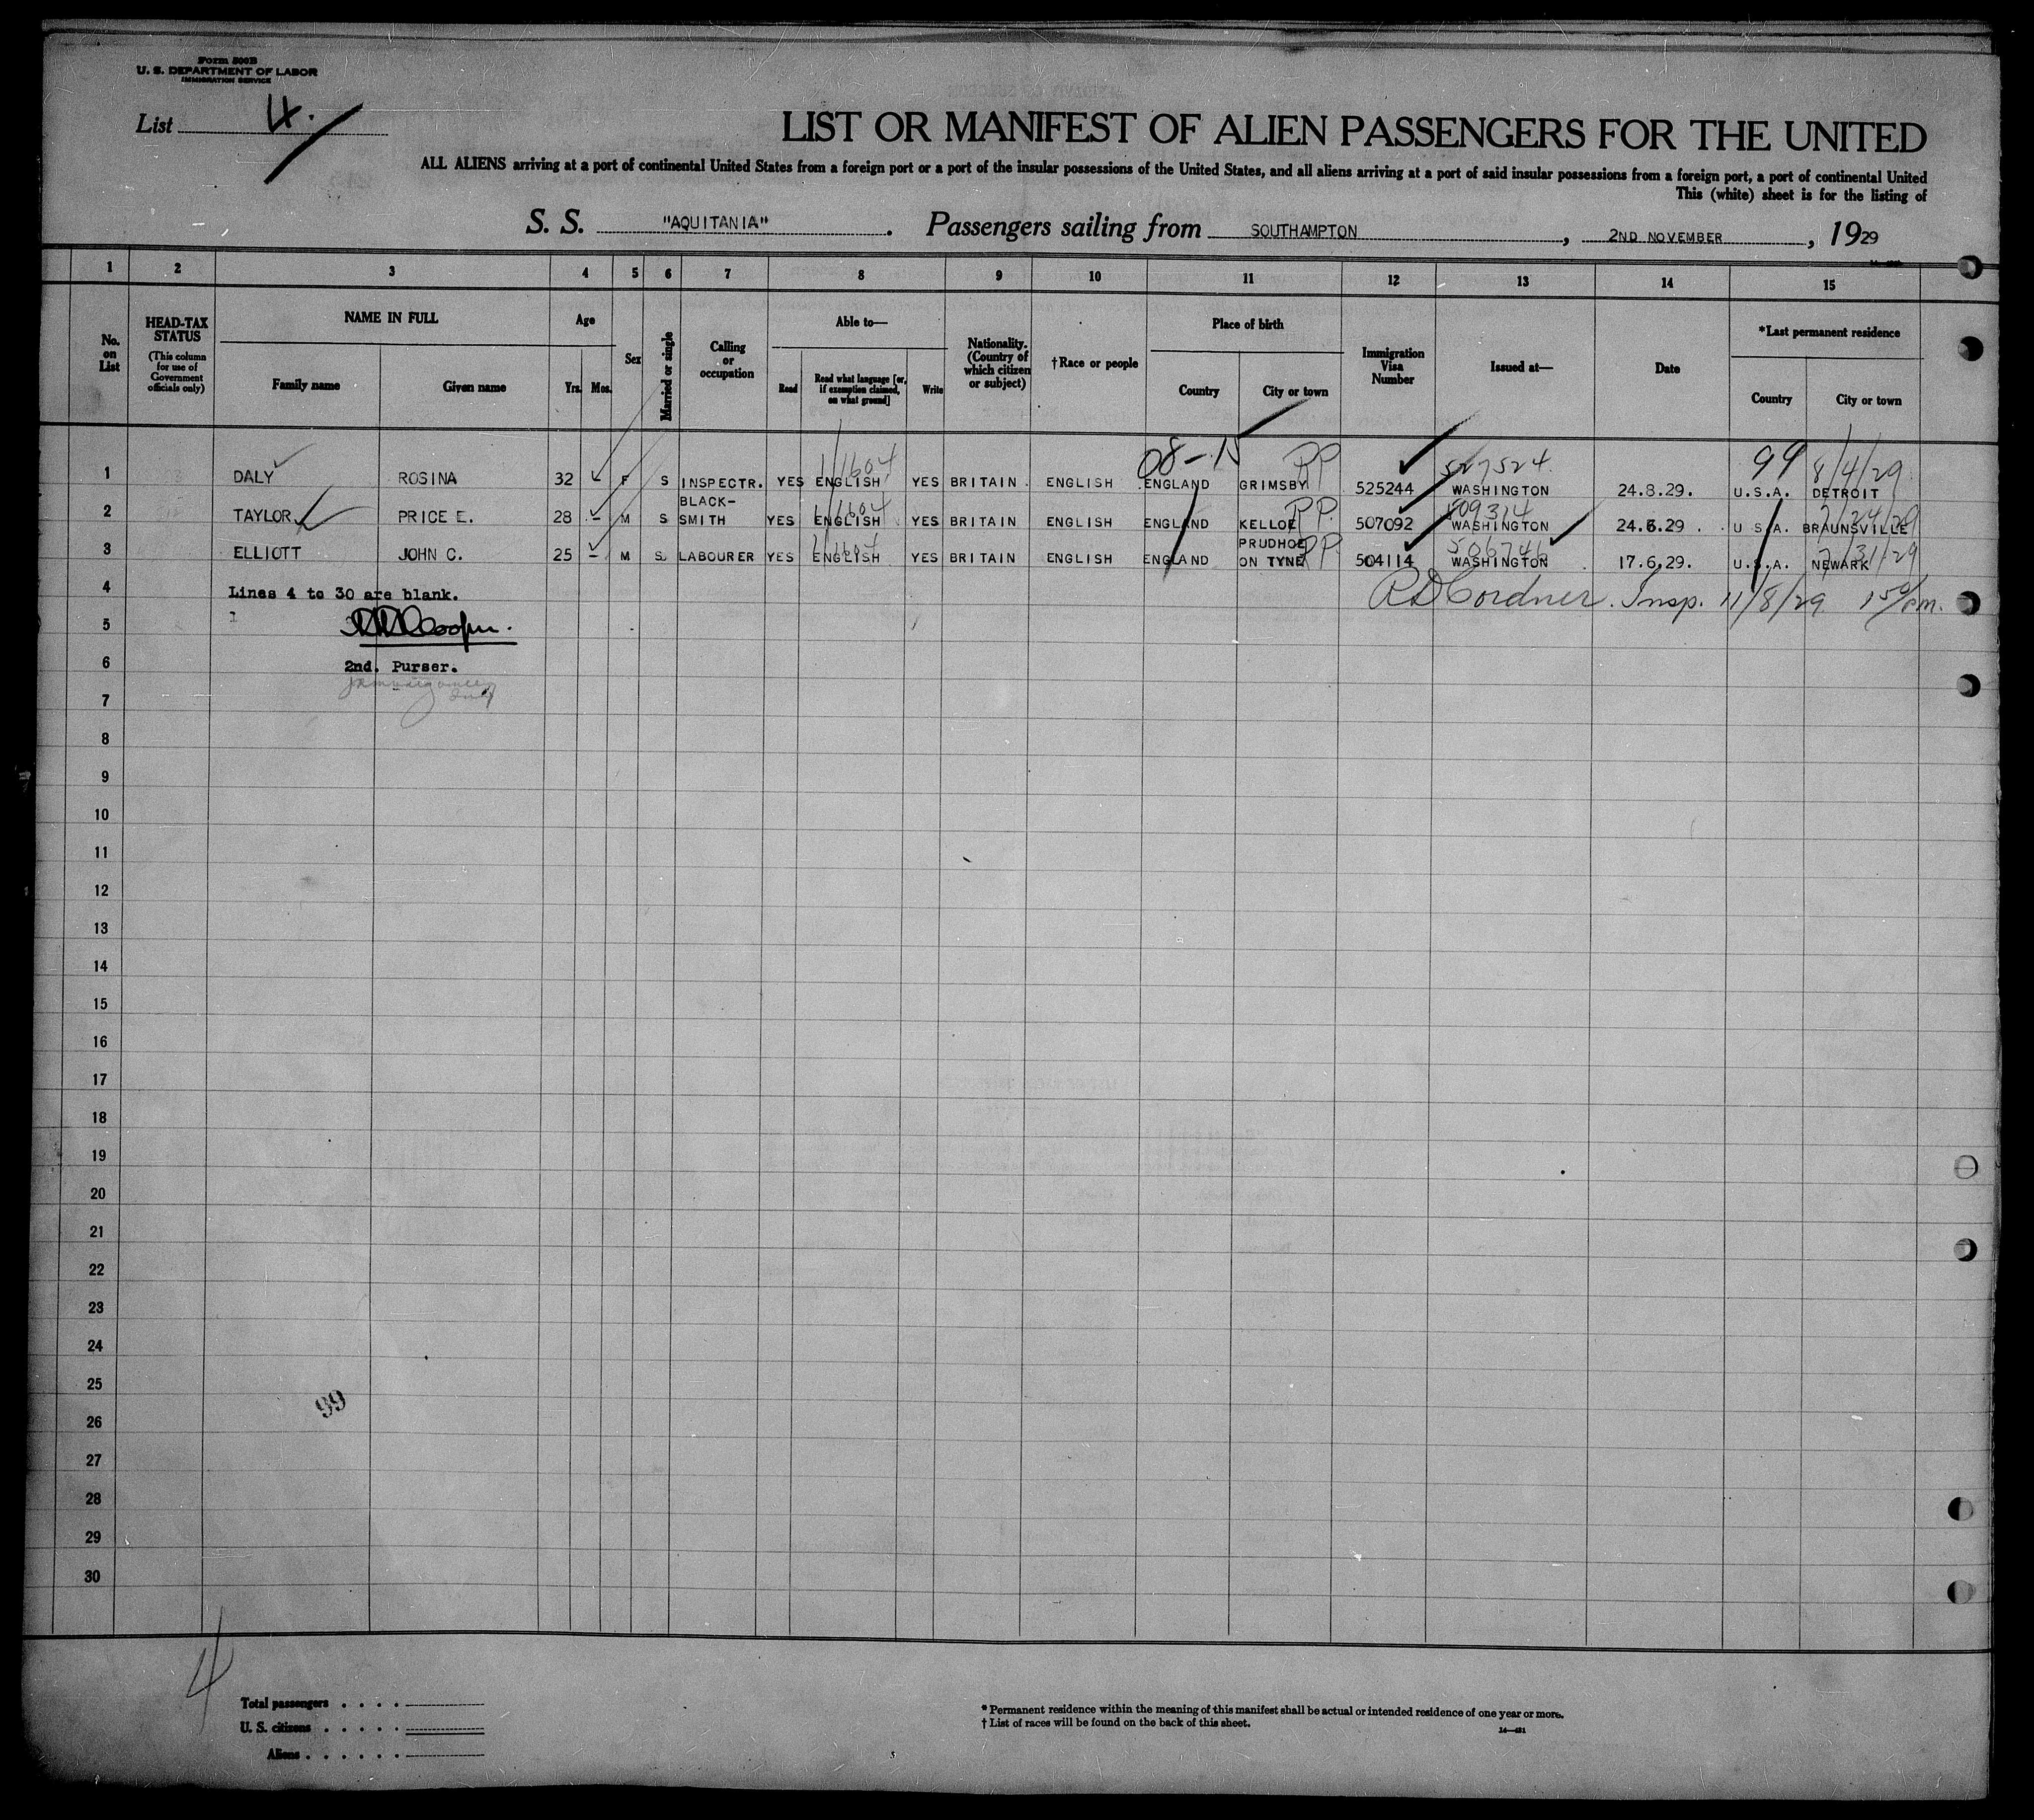 Form 500B
U. S. DEPARTMENT OF LABOR
IMMIGRATION SERVICE
List 4.
LIST OR MANIFEST OF ALIEN PASSENGERS FOR THE UNITED
ALL ALIENS arriving at a port of continental United States from a foreign port or a port of the insular possessions of the United States, and all aliens arriving at a port of said insular possessions from a foreign port, a port of continental United
This (white) sheet is for the listing of
S. S. "AQUITANIA". Passengers sailing from SOUTHAMPTON, 2ND NOVEMBER, 1929
1 2 3 4 5 6 7 8 9 10 11 12 13 14 15
No. on List
HEAD-TAX STATUS
(This column for use of Government officials only)
NAME IN FULL
Family name Given name
Age
Yrs. Mos.
Sex
Married or single
Calling or occupation
Able to—
Read Read what language [or, if exemption claimed, on what ground] Write
Nationality. (Country of which citizen or subject)
†Race or people
Place of birth
Country City or town
Immigration Visa Number
Issued at—
Date
*Last permanent residence
Country City or town
08-15 PP 527524 99 8/4/29
1 DALY ROSINA 32 F S INSPECTR. YES ENGLISH YES BRITAIN ENGLISH ENGLAND GRIMSBY 525244 WASHINGTON 24.8.29. U.S.A. DETROIT
1/1604 PP 509314 7/24/29
2 TAYLOR PRICE E. 28 - M S BLACK-SMITH YES ENGLISH YES BRITAIN ENGLISH ENGLAND KELLOE 507092 WASHINGTON 24.6.29. U S.A. BRAUNSVILLE
PP 506746 7/31/29
3 ELLIOTT JOHN C. 25 - M S LABOURER YES ENGLISH YES BRITAIN ENGLISH ENGLAND PRUDHOE ON TYNE 504114 WASHINGTON 17.6.29. U.S.A. NEWARK
4 Lines 4 to 30 are blank. RD Cordner. Insp. 11/8/29 1 50/pm.
5 Cooper.
6 2nd. Purser.
7
8
9
10
11
12
13
14
15
16
17
18
19
20
21
22
23
24
25
99
26
27
28
29
30
4
Total passengers
U. S. citizens
Aliens
* Permanent residence within the meaning of this manifest shall be actual or intended residence of one year or more.
† List of races will be found on the back of this sheet.
14—421
5